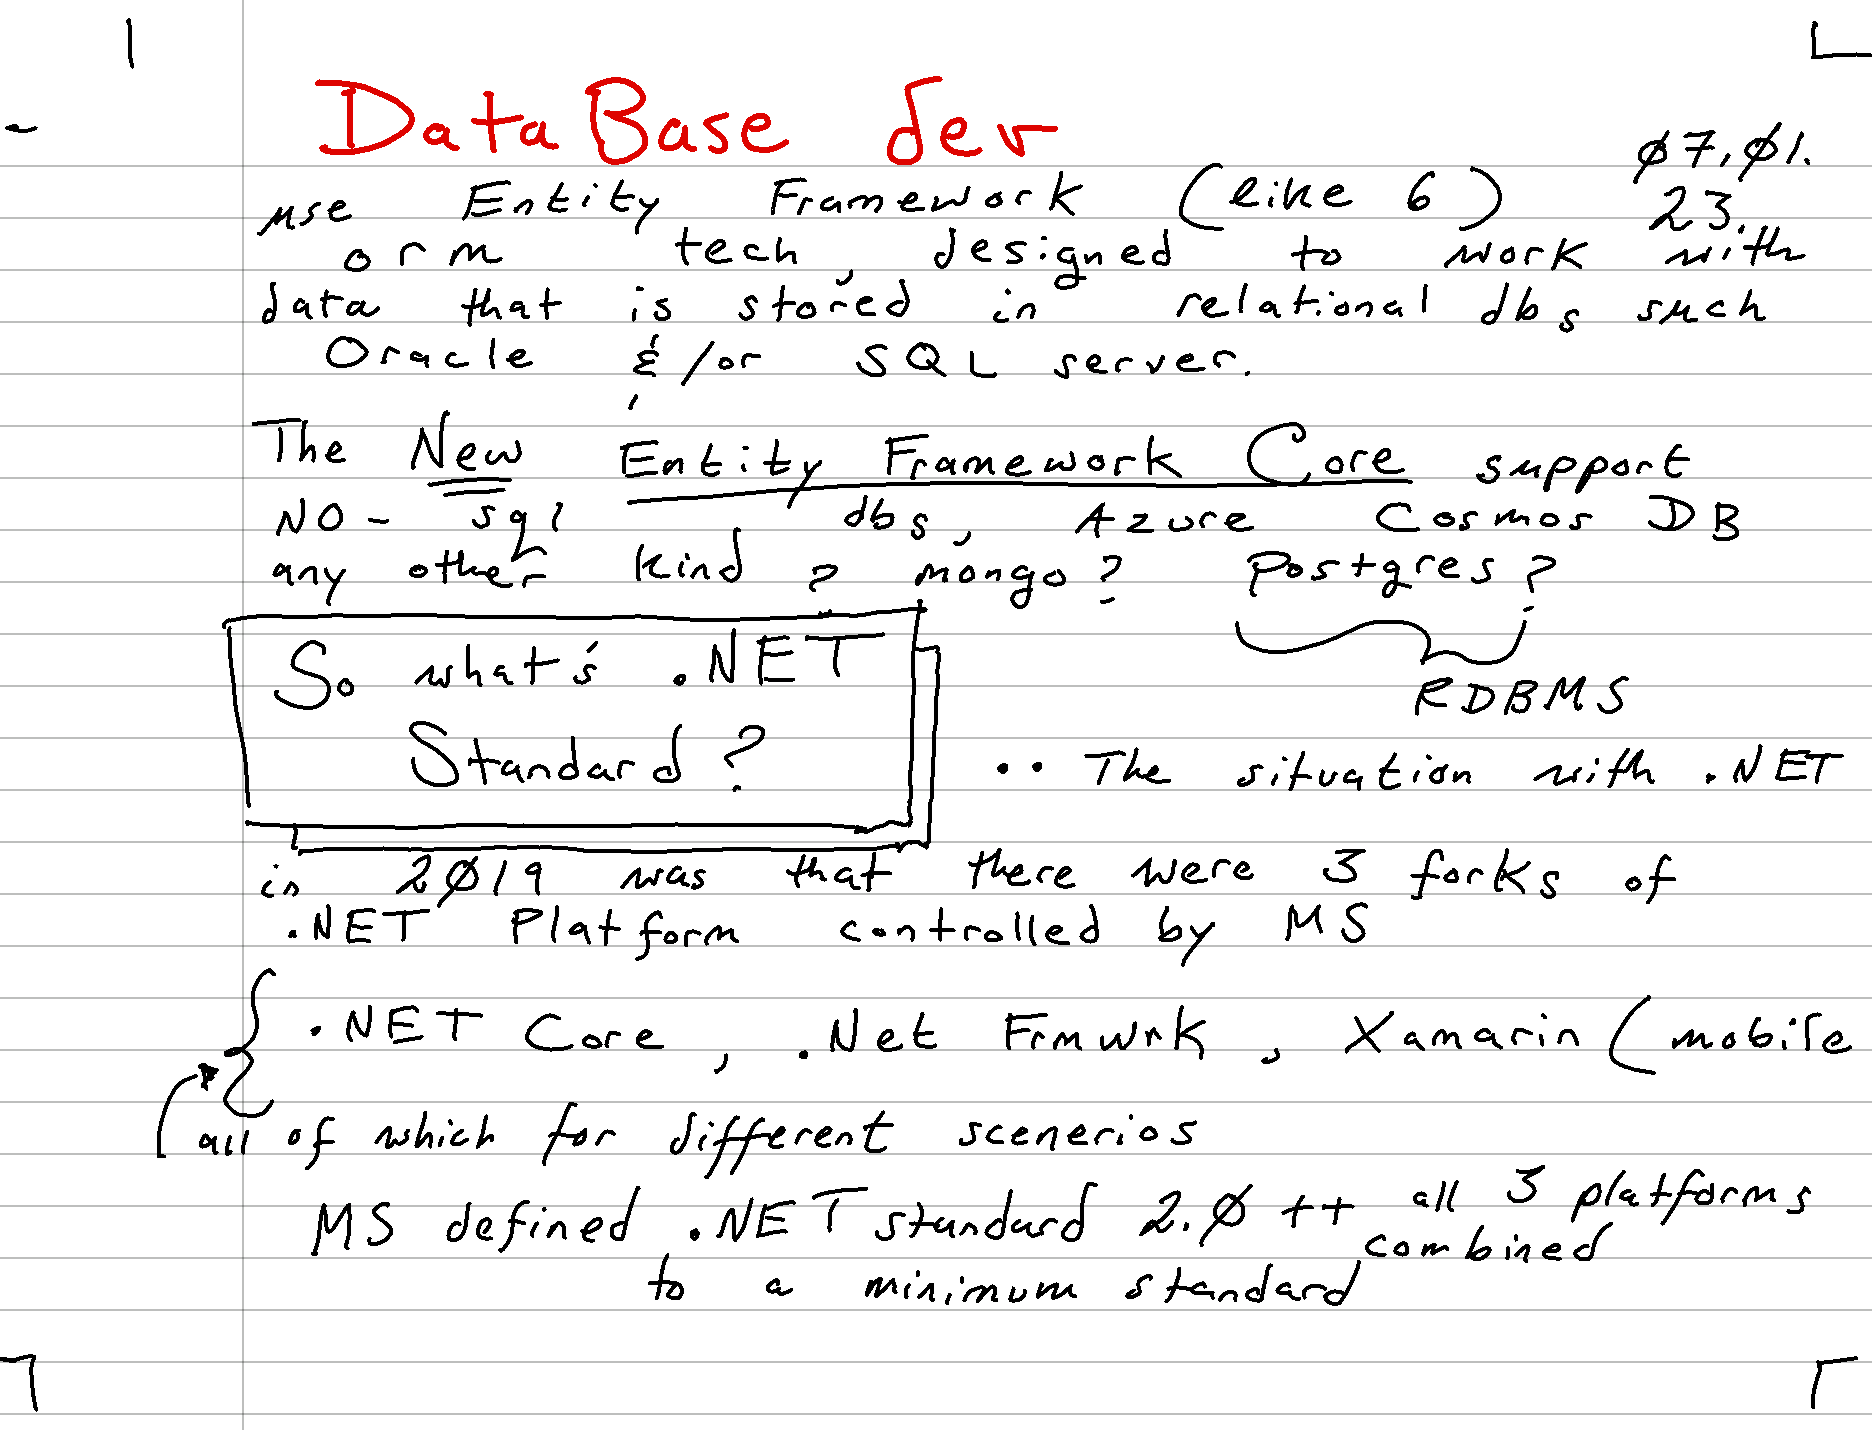 DataBase dev
07,01.
23.
use Entity Framework (like 6)
orm tech, designed to work with
data that is stored in relational dbs such
Oracle & /or SQL server.
The New Entity Framework Core support
NO-sql dbs, Azure Cosmos DB
any other kind? mongo? Postgres?
RDBMS
So what's .NET
Standard?
.. The situation with .NET
in 2019 was that there were 3 forks of
.NET Platform controlled by MS
.NET Core, .Net Frmwrk, Xamarin (mobile
all of which for different scenerios
MS defined .NET standard 2.0 ++ all 3 platforms
combined
to a minimum standard